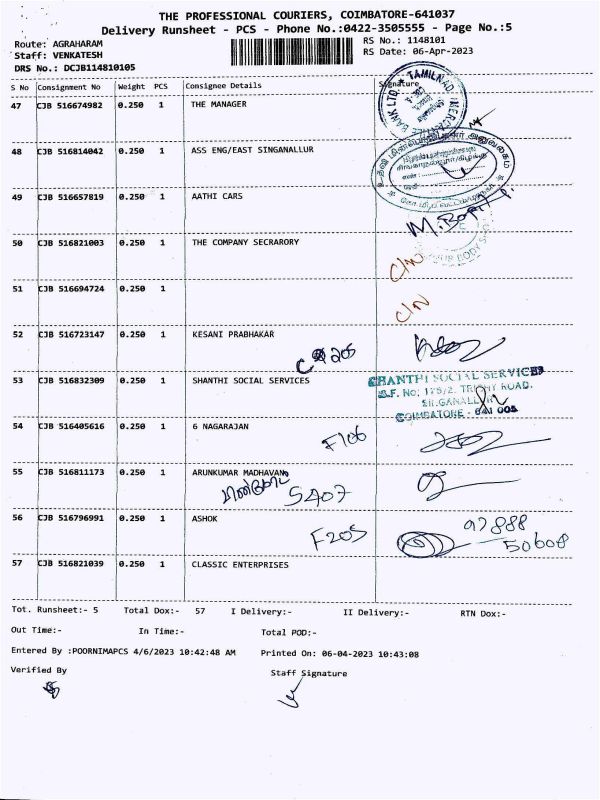 THE PROFESSIONAL COURIERS, COIMBATORE-641037
Delivery Runsheet - PCS - Phone No.:0422-3505555 - Page No.:5
Route: AGRAHARAM
RS No.: 1148101
Staff: VENKATESH
RS Date: 06-Apr-2023
DRS No.: DCJB114810105
S No Consignment No Weight PCS Consignee Details Signature
47 CJB 516674982 0.250 1 THE MANAGER
BANK LTD. ★ TAMILNAD MERCANTILE
48 CJB 516814042 0.250 1 ASS ENG/EAST SINGANALLUR
49 CJB 516657819 0.250 1 AATHI CARS
50 CJB 516821003 0.250 1 THE COMPANY SECRARORY
C/N
51 CJB 516694724 0.250 1
C/N
52 CJB 516723147 0.250 1 KESANI PRABHAKAR
53 CJB 516832309 0.250 1 SHANTHI SOCIAL SERVICES
SHANTHI SOCIAL SERVICES
S.F. No: 175/2, TRICHY ROAD,
SINGANALLUR
COIMBATORE - 641 005
54 CJB 516405616 0.250 1 6 NAGARAJAN
F106
55 CJB 516811173 0.250 1 ARUNKUMAR MADHAVAN
S407
56 CJB 516796991 0.250 1 ASHOK
F205
97888
50608
57 CJB 516821039 0.250 1 CLASSIC ENTERPRISES
Tot. Runsheet:- 5 Total Dox:- 57 I Delivery:- II Delivery:- RTN Dox:-
Out Time:- In Time:- Total POD:-
Entered By :POORNIMAPCS 4/6/2023 10:42:48 AM Printed On: 06-04-2023 10:43:08
Verified By Staff Signature